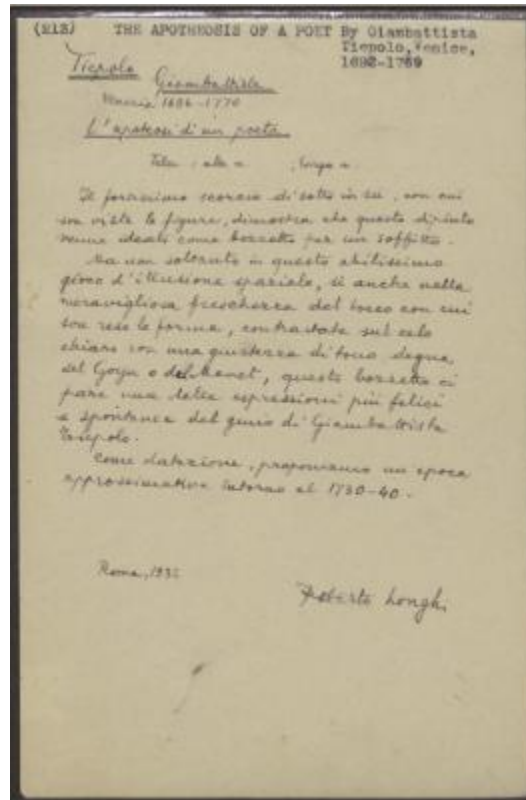 (213) THE APOTHEOSIS OF A POET By Giambattista
Tiepolo, Venice,
1692-1769
Tiepolo Giambattista
Venezia 1696-1770
L'apoteosi di un poeta
Tela : alta m. , larga m.
Il forzatissimo scorcio di sotto in su, con cui
son viste le figure, dimostra che questo dipinto
venne ideato come bozzetto per un soffitto.
Ma non soltanto in questo abilissimo
gioco d'illusione spaziale, sì anche nella
meravigliosa freschezza del tocco con cui
son rese le forme, contrastate sul cielo
chiaro con una giustezza di tono degna
del Goya o del Manet, questo bozzetto ci
pare una delle espressioni più felici
e spontanee del genio di Giambattista
Tiepolo.
Come datazione, proponiamo un'epoca
approssimativa intorno al 1730-40.
Roma, 193
Roberto Longhi